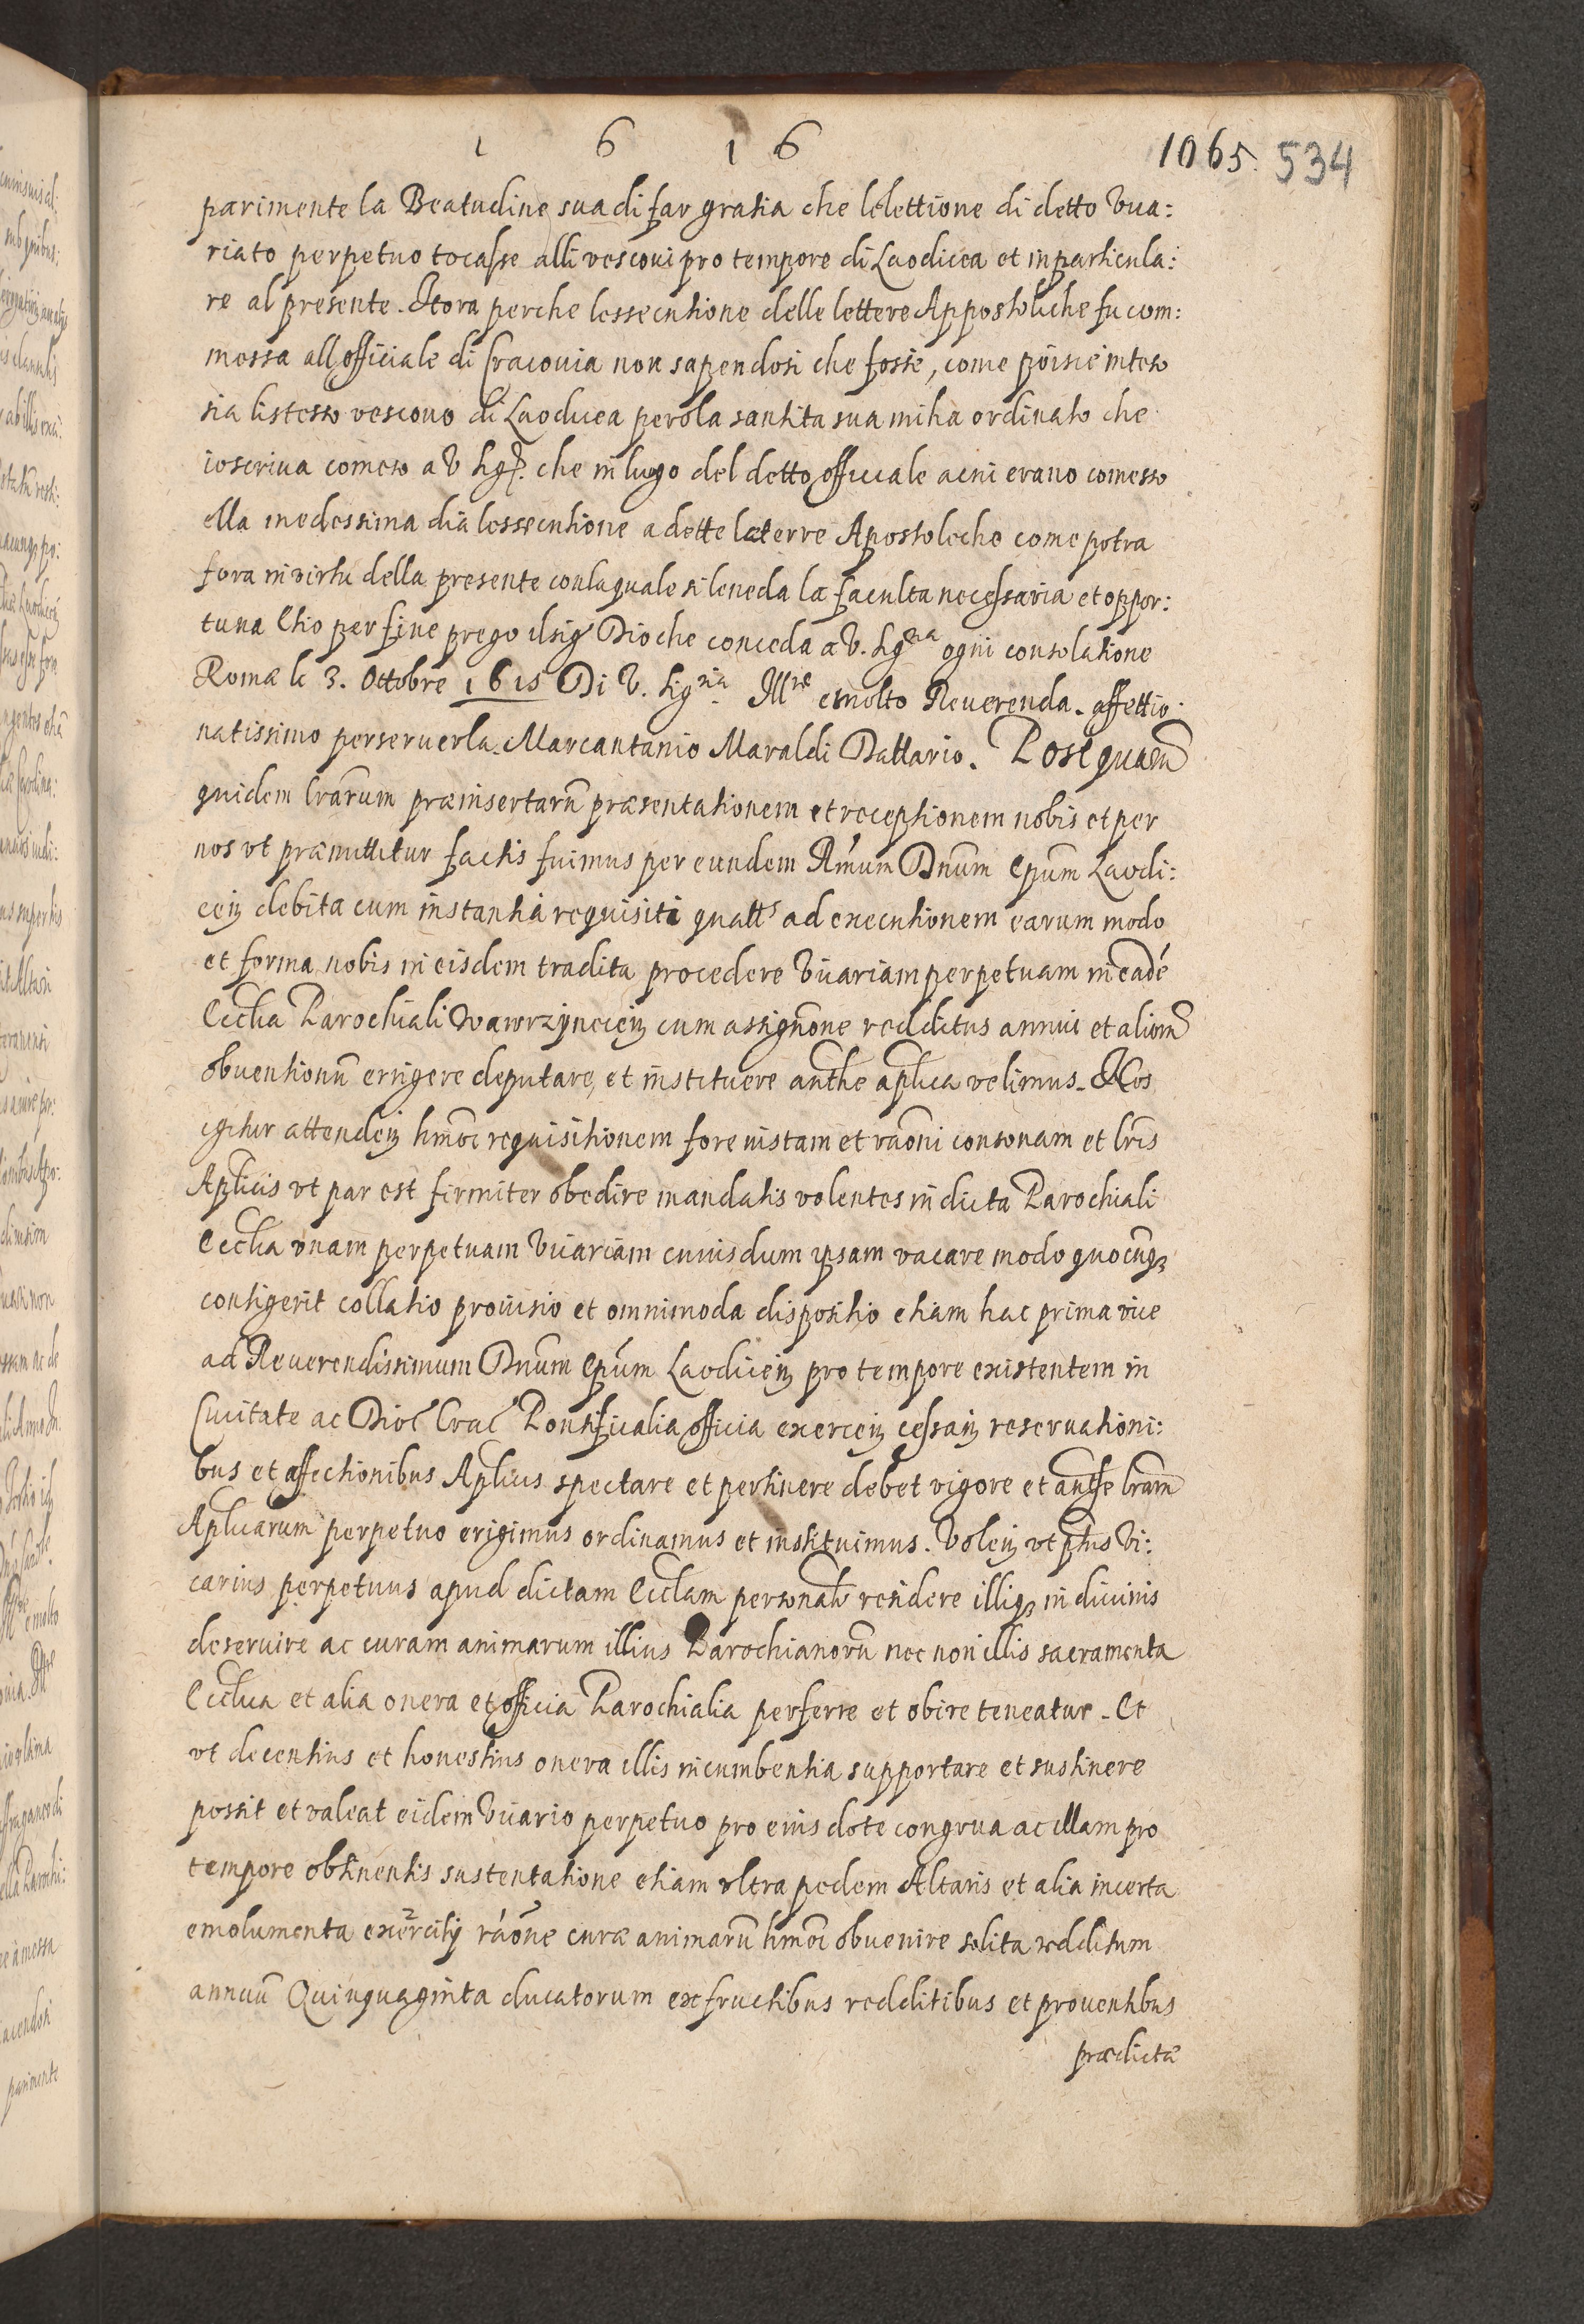 1 6 1 6
1065. 534
parimente la Beatudine sua di far gratia che lelettione di detto Vica:
riato perpetuo tocasse alli vescoui pro tempore di Laodicea et in particula:
re al presente. Et ora perche lessecutione delle lettere Appostoliche fu com:
messa all officiale di Cracouia non sapendosi che fosse, come poi sie inteso
sia listesso vescouo di Laodicea pero la santita sua mi ha ordinato che
io scriua come so a V Sig. che in lugo del detto officiale a cui erano comesso
ella medessima dia lessecutione a dette laterre Apostoleche come potra
fora in virtu della presente con la quale si le neda la faculta necessaria et oppor:
tuna Chio per fine prego il sig Dio che conceda a V. Sigria ogni consolatione
Roma le 3. Ottobre 1615 Di V. Sigria Illre e molto Reuerenda. affettio:
natissimo per seruerla. Marcantanio Maraldi Dattario. Post quam
quidem lrarum præinsertarũ præsentationem et receptionem nobis et per
nos vt præmittitur factis fuimus per eundem Rmum Dnum Epum Laodi:
ceñ debita cum instantia requisiti quatts ad executionem earum modo
et forma nobis in eisdem tradita procedere Vicariam perpetuam in eadé
Ecclia Parochiali Wawrzynecieñ cum assignone redditus annui et aliorũ
obuentionũ errigere deputare, et instituere authe aplica velimus. Nos
igitur attendeñ hmoi requisitionem fore iustam et raoni consonam et lris
Aplicis vt par est firmiter obedire mandatis volentes in dicta Parochiali
Ecclia vnam perpetuam Vicariam cuius dum ipsam vacare modo quocunq
contigerit collatio prouisio et omnimoda dispositio etiam hac prima vice
ad Reuerendissimum Dnum Epum Laodiceñ pro tempore existentem in
Ciuitate ac Dioc Crac Pontificalia officia exerceñ cessañ reseruationi:
bus et affectionibus Aplicis spectare et pertinere debet vigore et authe lram
Aplicarum perpetuo erigimus ordinamus et instituimus. Voleñ vt ptus Vi:
carius perpetuus apud dictam Ecclam personalr residere illiq in diuinis
deseruire ac curam animarum illius Parochianorũ nec non illis sacramenta
Ecclica et alia onera et officia Parochialia perferre et obire teneatur. Et
vt decentius et honestius onera illis incumbentia supportare et sustinere
possit et valeat eidem Vicario perpetuo pro eius dote congrua ac illam pro
tempore obtinentis sustentatione etiam vltra pedem Altaris et alia incerta
emolumenta exercitij raone curæ animarũ hmoi obuenire solita redditum
annuũ Quinquaginta ducatorum ex fructibus redditibus et prouentibus
prædictæ